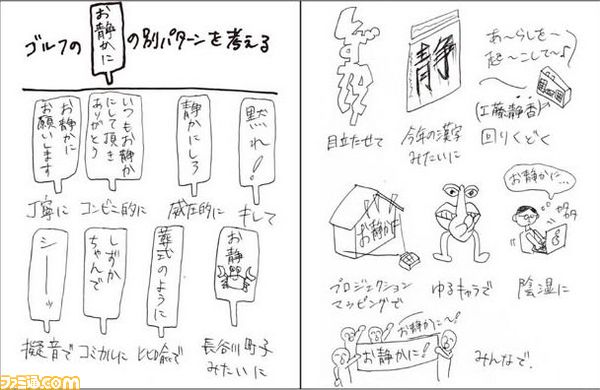 ゴルフの お静かに の別パターンを考える
お静かに
お願いします
丁寧に
いつもお静か
にして頂き
ありがとう
コンビニ的に
静かにしろ
威圧的に
黙れ!
キレて
シーーッ
擬音で
しずか
ちゃんで
コミカルに
葬式のように
比喩で
お静
長谷川町子
みたいに
目立たせて
静
今年の漢字
みたいに
あ〜らしを〜
起〜こして〜♪
(工藤静香)
回りくどく
お静かに
プロジェクション
マッピングで
ゆるキャラで
お静かに…
カタカタ
陰湿に
お静かに〜!
お静かに!
みんなで.
ファミ通.com